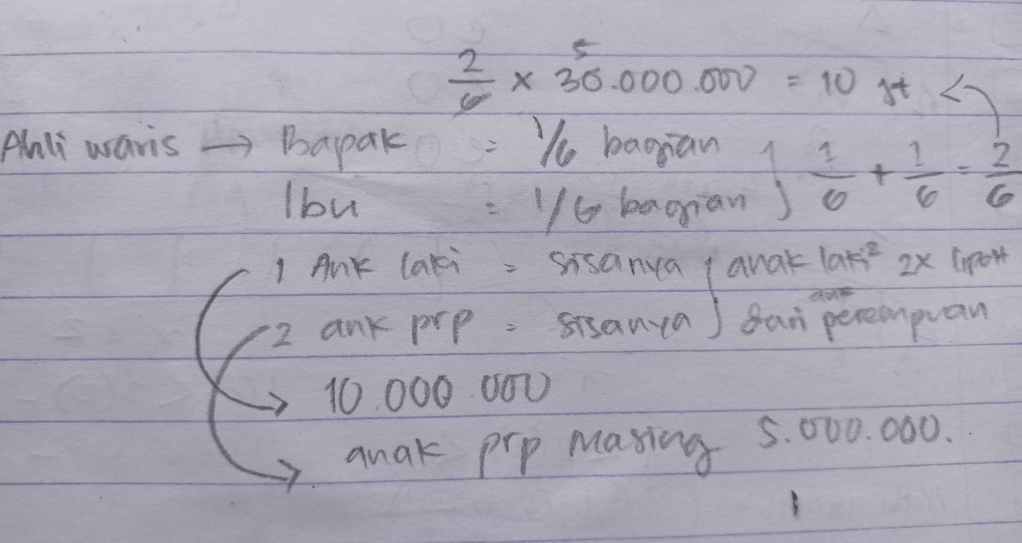 2/6 x 30.000.000 = 10 jt
5
Ahli waris → Bapak = 1/6 bagian } 1/6 + 1/6 = 2/6
Ibu = 1/6 bagian
1 Ank laki = sisanya } anak laki² 2x lipat
2 ank prp = sisanya } dari anak perempuan
10.000.000
anak prp masing 5.000.000.